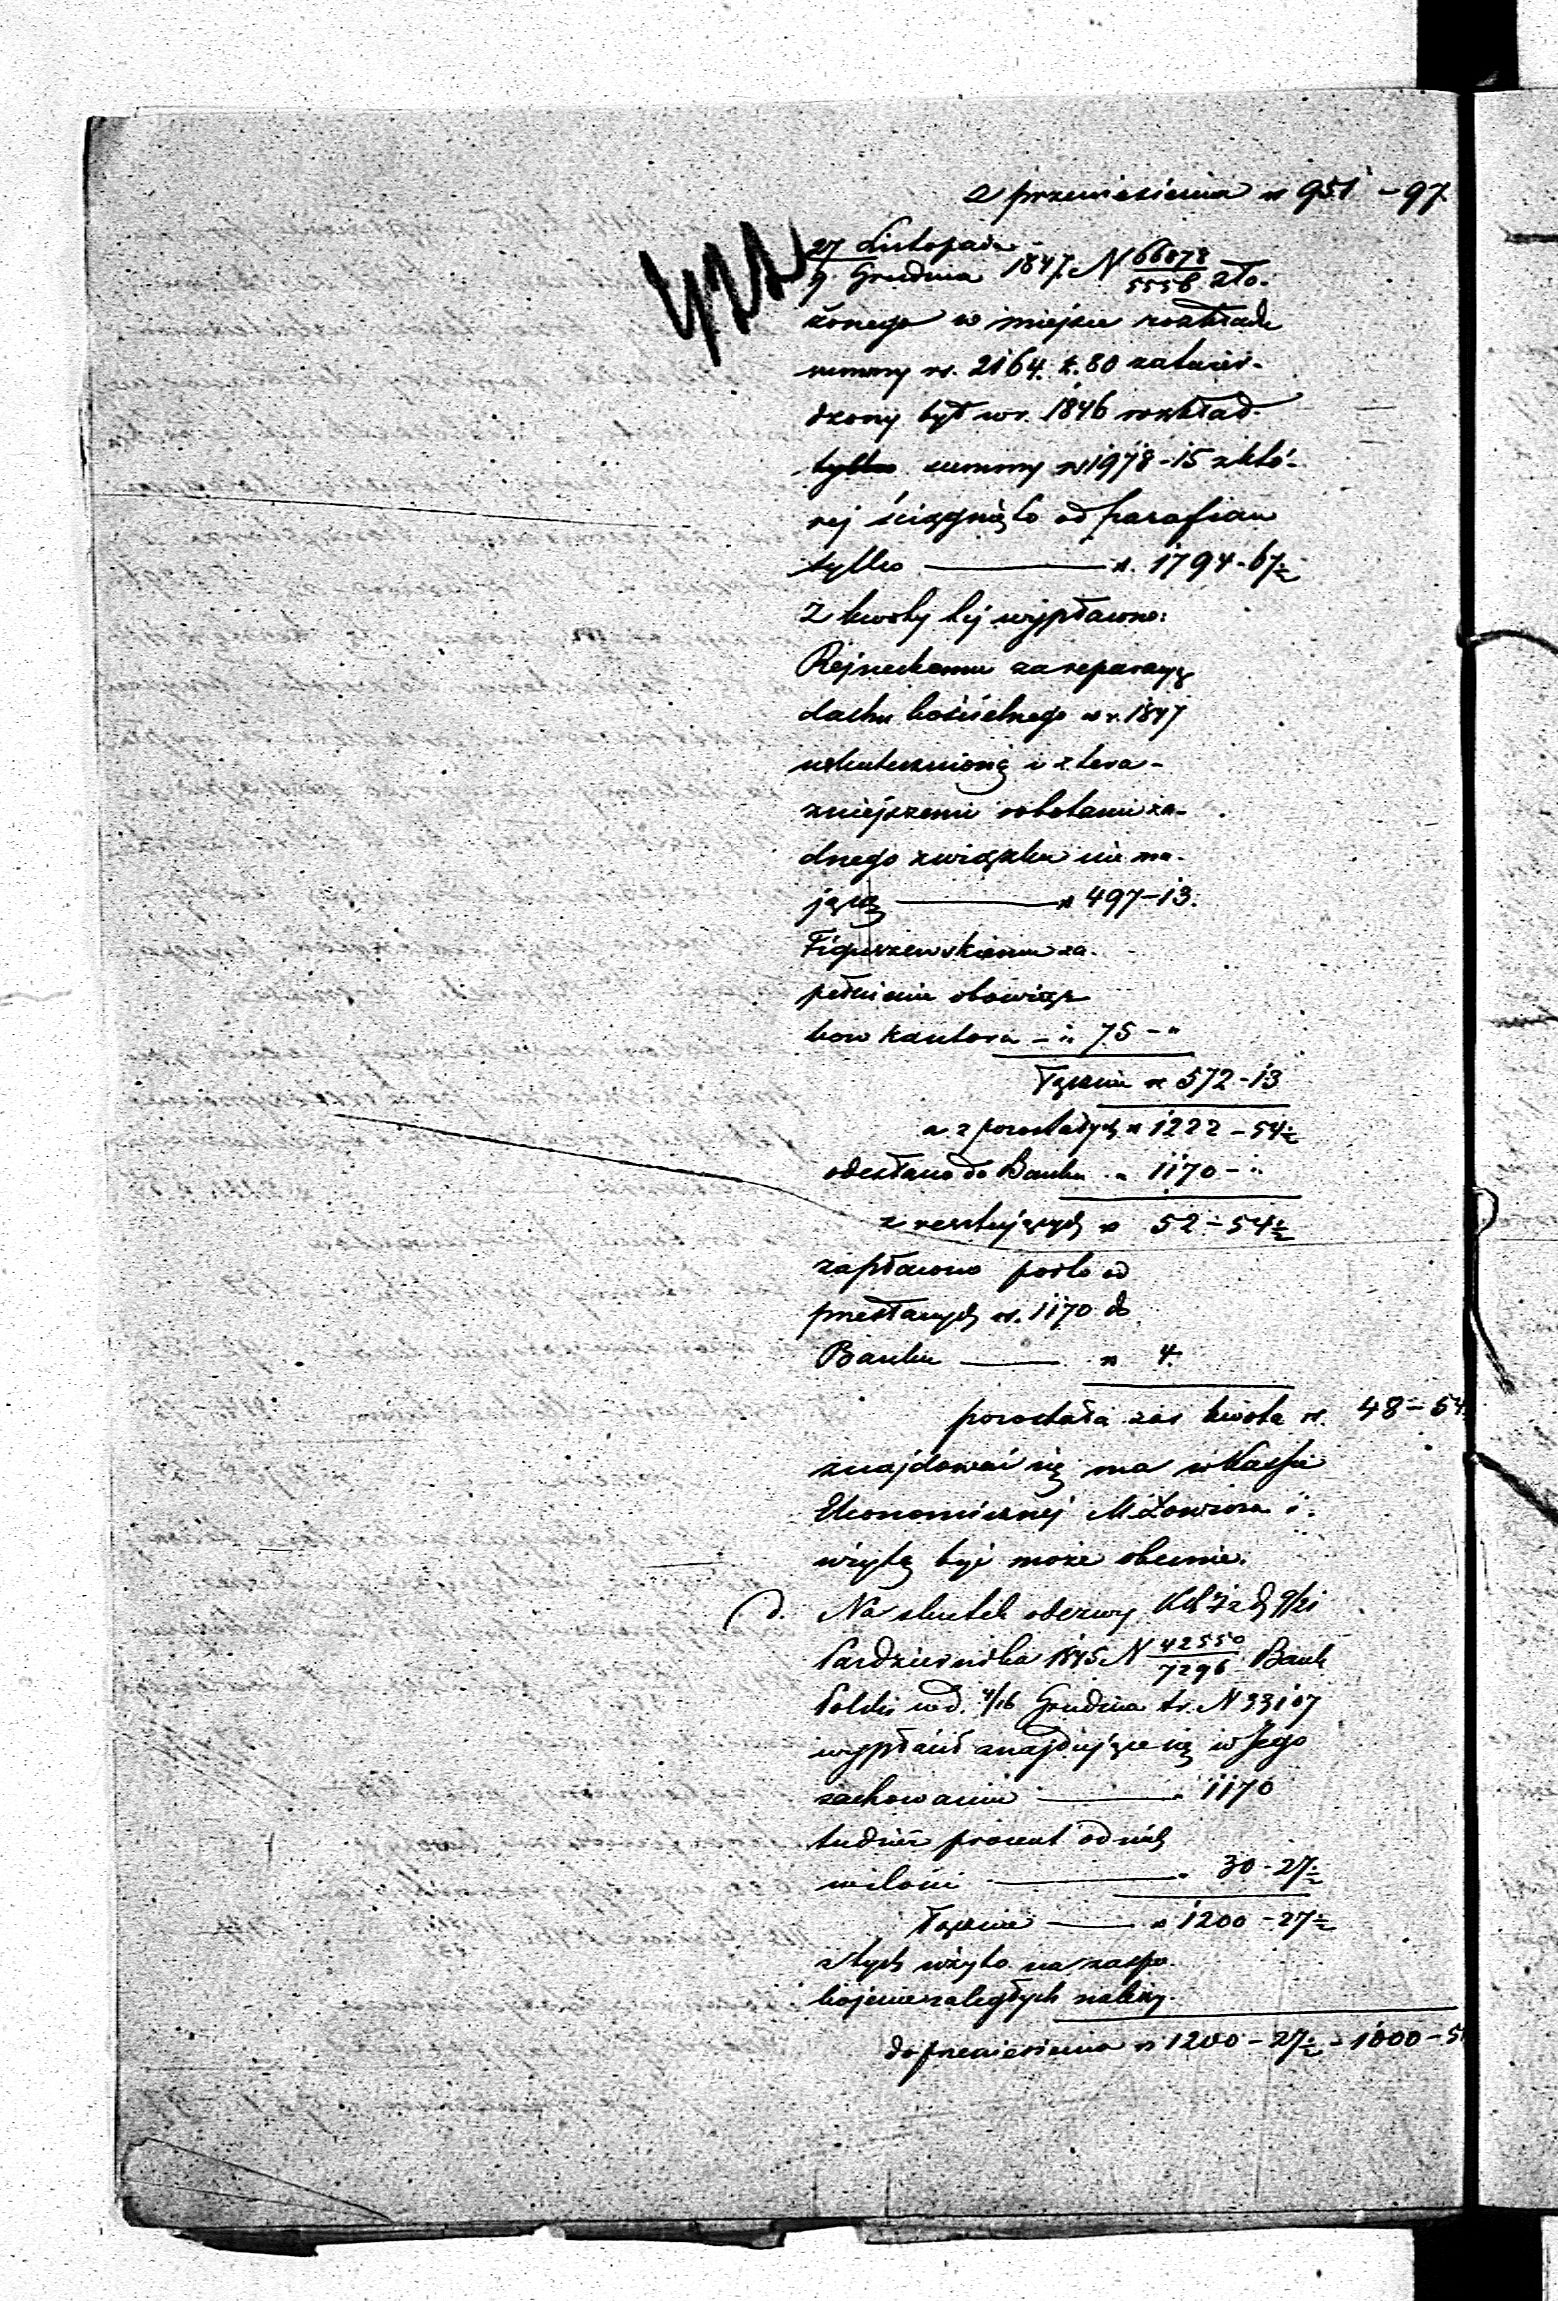 z przeniesienia rs 951 - 97
27 Listopada
9 Grudnia 1847 N 66878/5556 zło-
żonego w miejsce rozkładu
summy rs. 2164. k. 80 zatwier-
dzony był w r. 1846 rozkład
tylko summy rs 1978 - 15 z któ-
rej ściągnięto od parafian
tylko rs. 1794 - 67½
Z kwoty tej wypłacono:
Rejneckemu za reparacyę
dachu kościelnego w r. 1847
uskutecznioną i z tera-
zniejszemi robotami ża-
dnego związku nie ma-
jącą rs 497 - 13.
Figuszewskiemu za
pełnienie obowiąz-
kow kantora - " 75 - "
Łącznie rs 572 - 13
a z pozostałych rs 1222 - 54½
odesłano do Banku " 1170 - "
z resztujących rs 52 - 54½
zapłacono porto od
przesłanych rs. 1170 do
Banku rs 4.
pozostała zaś kwota rs. 48 - 54
znajdować się ma w Kassie
Ekonomicznej M. Łowicza i
użytą być może obecnie.
d. Na skutek odezwy 9/21
Października 1845 N 42550/7296 Bank
Polski w d. 4/16 Grudnia t.r. N 33107
wypłacił znajdujące się w Jego
zachowaniu " 1170
tudzież procent od nich
w ilości " 30 - 27½
Łącznie rs 1200 - 27½
z tych użyto na zaspo-
kojenie zaległych należy.
do przeniesienia rs 1200 - 27½ - 1000 - 5